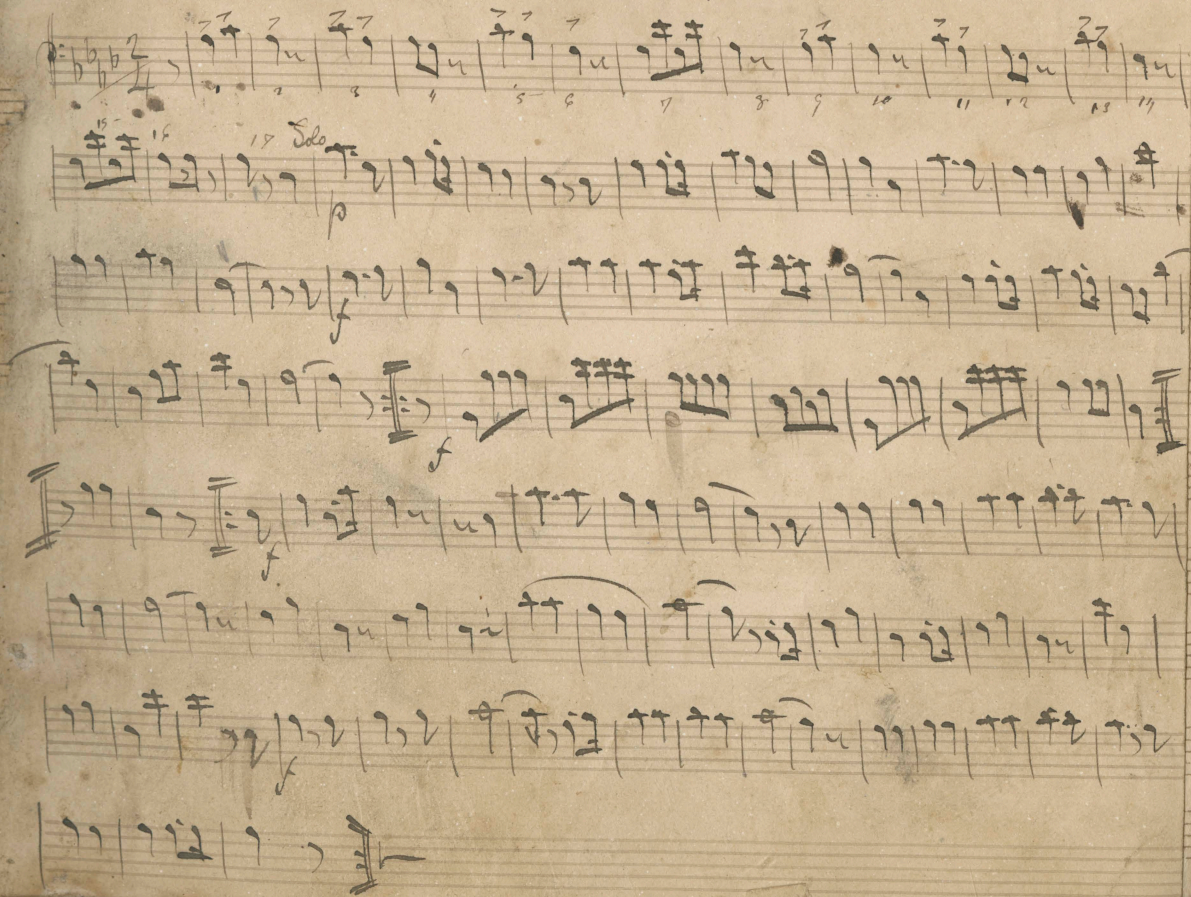 2
4
1 2 3 4 5 6 7 8 9 10 11 12 13 14
15 16 17 Solo
p
f
f
f
f